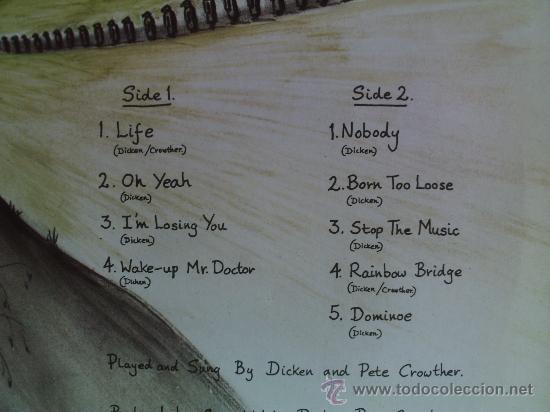 Side 1.
1. Life
(Dicken/Crowther)
2. Oh Yeah
(Dicken)
3. I'm Losing You
(Dicken)
4. Wake-up Mr. Doctor
(Dicken)
Side 2.
1. Nobody
(Dicken)
2. Born Too Loose
(Dicken)
3. Stop The Music
(Dicken)
4. Rainbow Bridge
(Dicken/Crowther)
5. Dominoe
(Dicken)
Played and Sung By Dicken and Pete Crowther.
www.todocoleccion.net